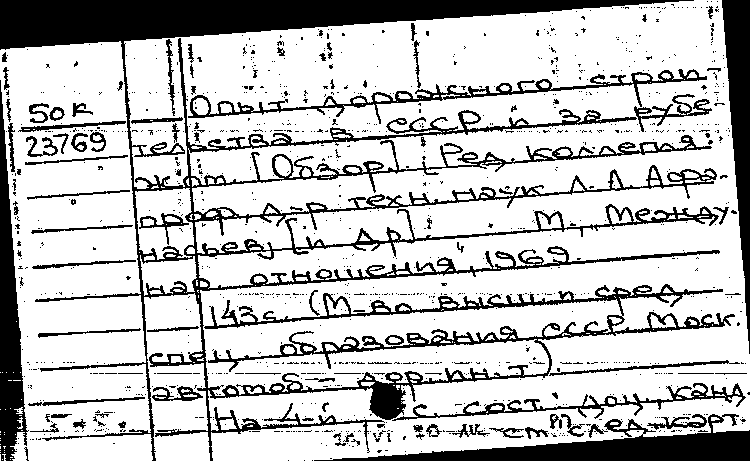 50к
23769
Опыт дорожного строи-
тельства в СССР и за рубе-
жом. [Обзор]. [Ред. коллегия:
проф., д-р техн. наук Л. Л. Афа-
насьев, [и др]. М., „Между-
нар. отношения", 1969.
143 с. (М-во высш. и сред.
спец. образования СССР. Моск.
автомоб.- дор. ин-т).
На 4-й с. сост.: доц., канд.
см след. карт.